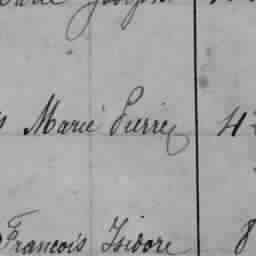 Joseph
Marie Pierre 4
Francois Isidore 8